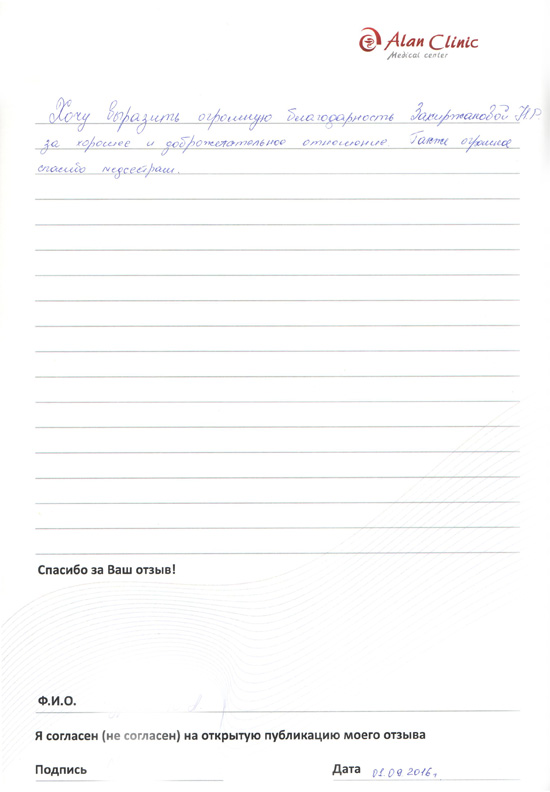 Alan Clinic
Medical center
Хочу выразить огромную благодарность Закиржановой Н.Р.
за хорошее и доброжелательное отношение Также огромное
спасибо медсестрам.
Спасибо за Ваш отзыв!
Ф.И.О.
Я согласен (не согласен) на открытую публикацию моего отзыва
Подпись
Дата 01.09.2016г.